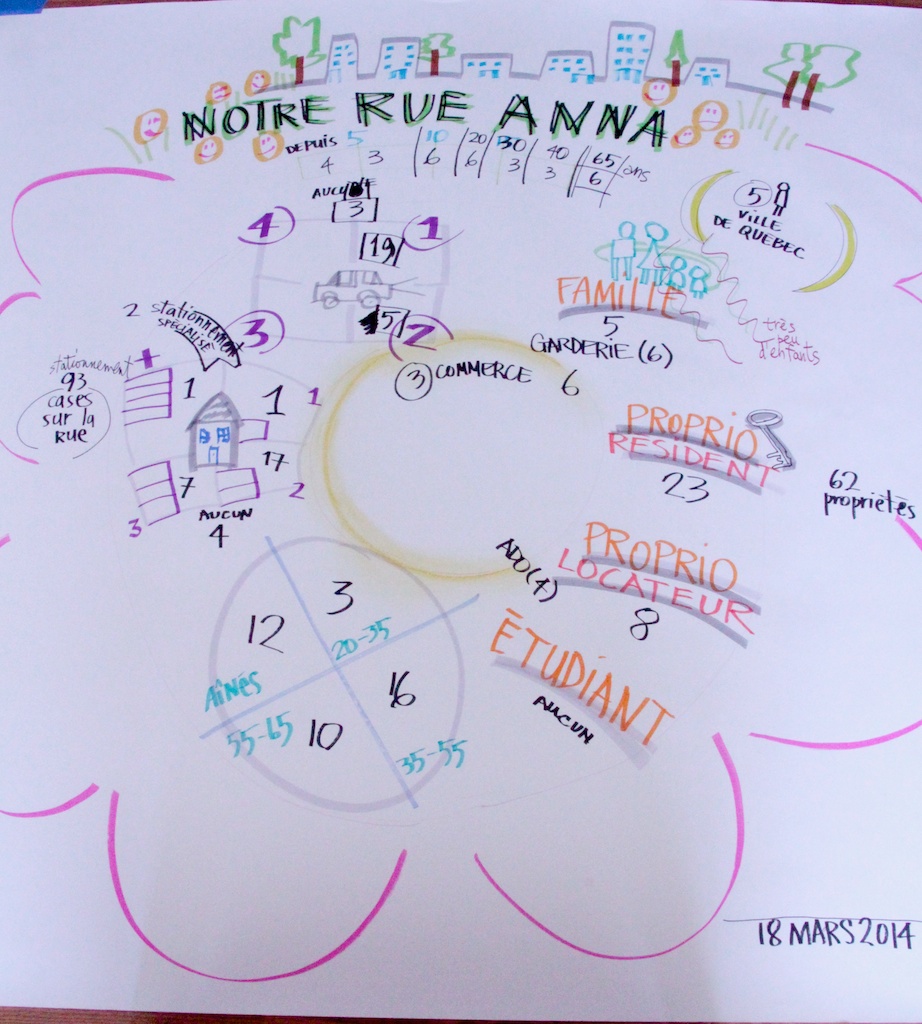 NOTRE RUE ANNA
DEPUIS 5 10 20 30 40 65 ans
4 3 6 6 3 3 6
3
4
19
1
5
2
5
VILLE
DE QUÉBEC
FAMILLE
5
GARDERIE (6)
très
peu
d'enfants
2 stationnement
SPÉCIALISÉ
3
stationnement
93
cases
sur la
RUE
+
1
1
1
17
2
7
3
AUCUN
4
3 COMMERCE 6
PROPRIO
RESIDENT
23
62
propriétés
PROPRIO
LOCATEUR
8
ADO (4)
ÉTUDIANT
AUCUN
3
20-35
12
AÎNÉS
16
35-55
10
55-65
18 MARS 2014